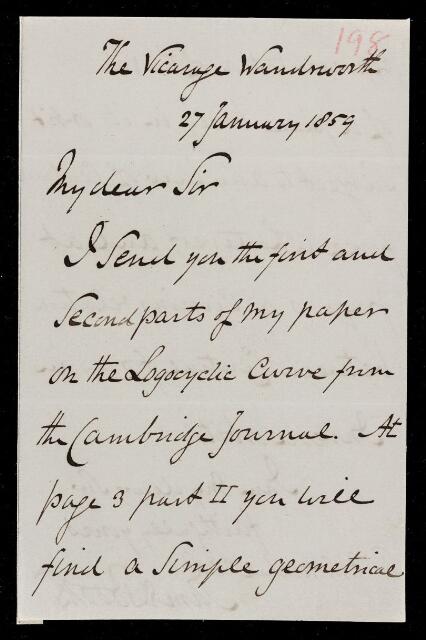 198
The Vicarage Wandsworth
27 January 1859
My dear Sir
I send you the first and
second parts of my paper
on the Logocyclic Curve from
the Cambridge Journal. At
page 3 part II you will
find a simple geometrical